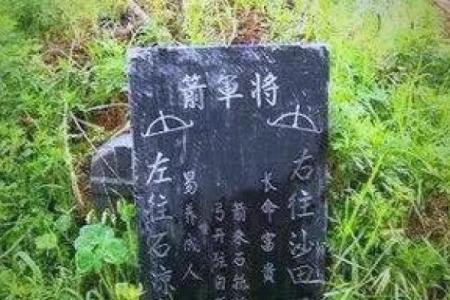 將軍箭
右往沙田
長命富貴
箭來石抵
弓開弦自
易養成人
左往石涼